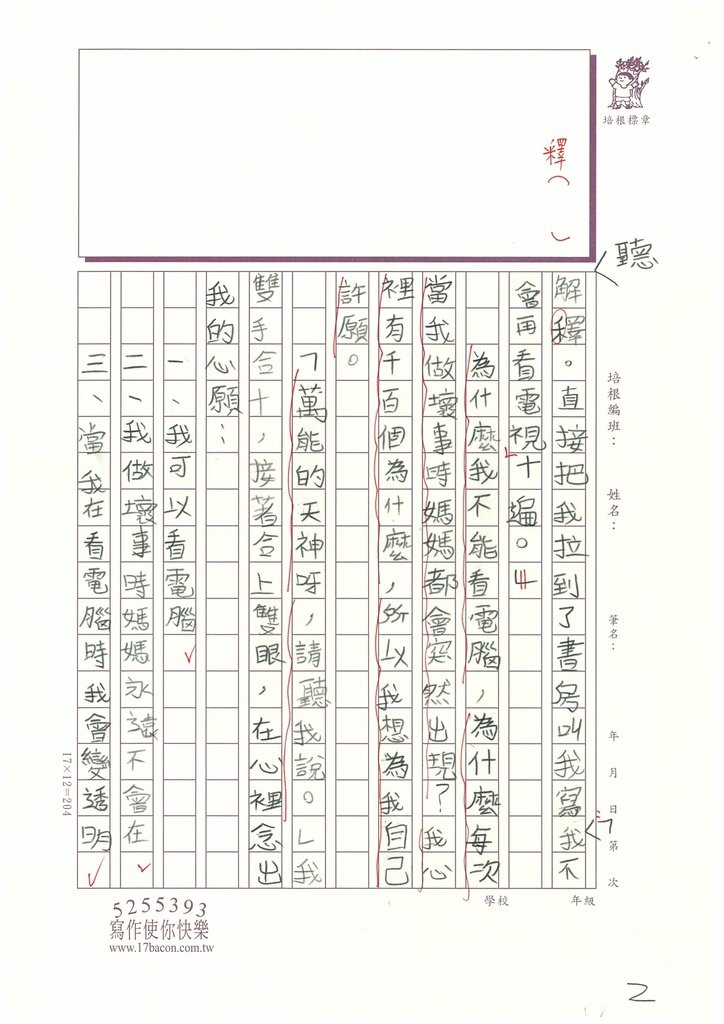 培根標章
釋（ ）
聽
培根編班：
姓名：
筆名：
年 月 日 第 次
解釋。直接把我拉到了書房叫我寫「我不
會再看電視十遍。」
為什麼我不能看電腦，為什麼每次
當我做壞事時媽媽都會突然出現？我心
裡有千百個為什麼，所以我想為我自己
許願。
「萬能的天神呀，請聽我說。」我
雙手合十，接著合上雙眼，在心裡念出
我的心願：
一、我可以看電腦
二、我做壞事時媽媽永遠不會在
三、當我在看電腦時我會變透明
17×12=204
學校
年級
5255393
寫作使你快樂
www.17bacon.com.tw
2